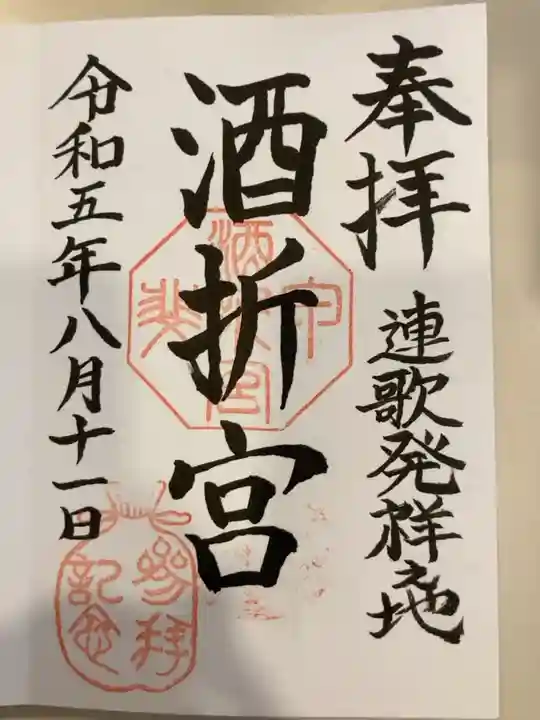 奉拝
連歌発祥之地
酒折宮
甲斐
酒折宮
令和五年八月十一日
参拝
記念